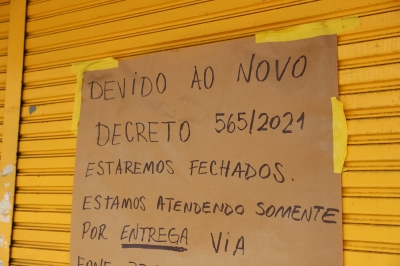 DEVIDO AO NOVO
DECRETO 565/2021
ESTAREMOS FECHADOS.
ESTAMOS ATENDENDO SOMENTE
POR ENTREGA VIA
FONE